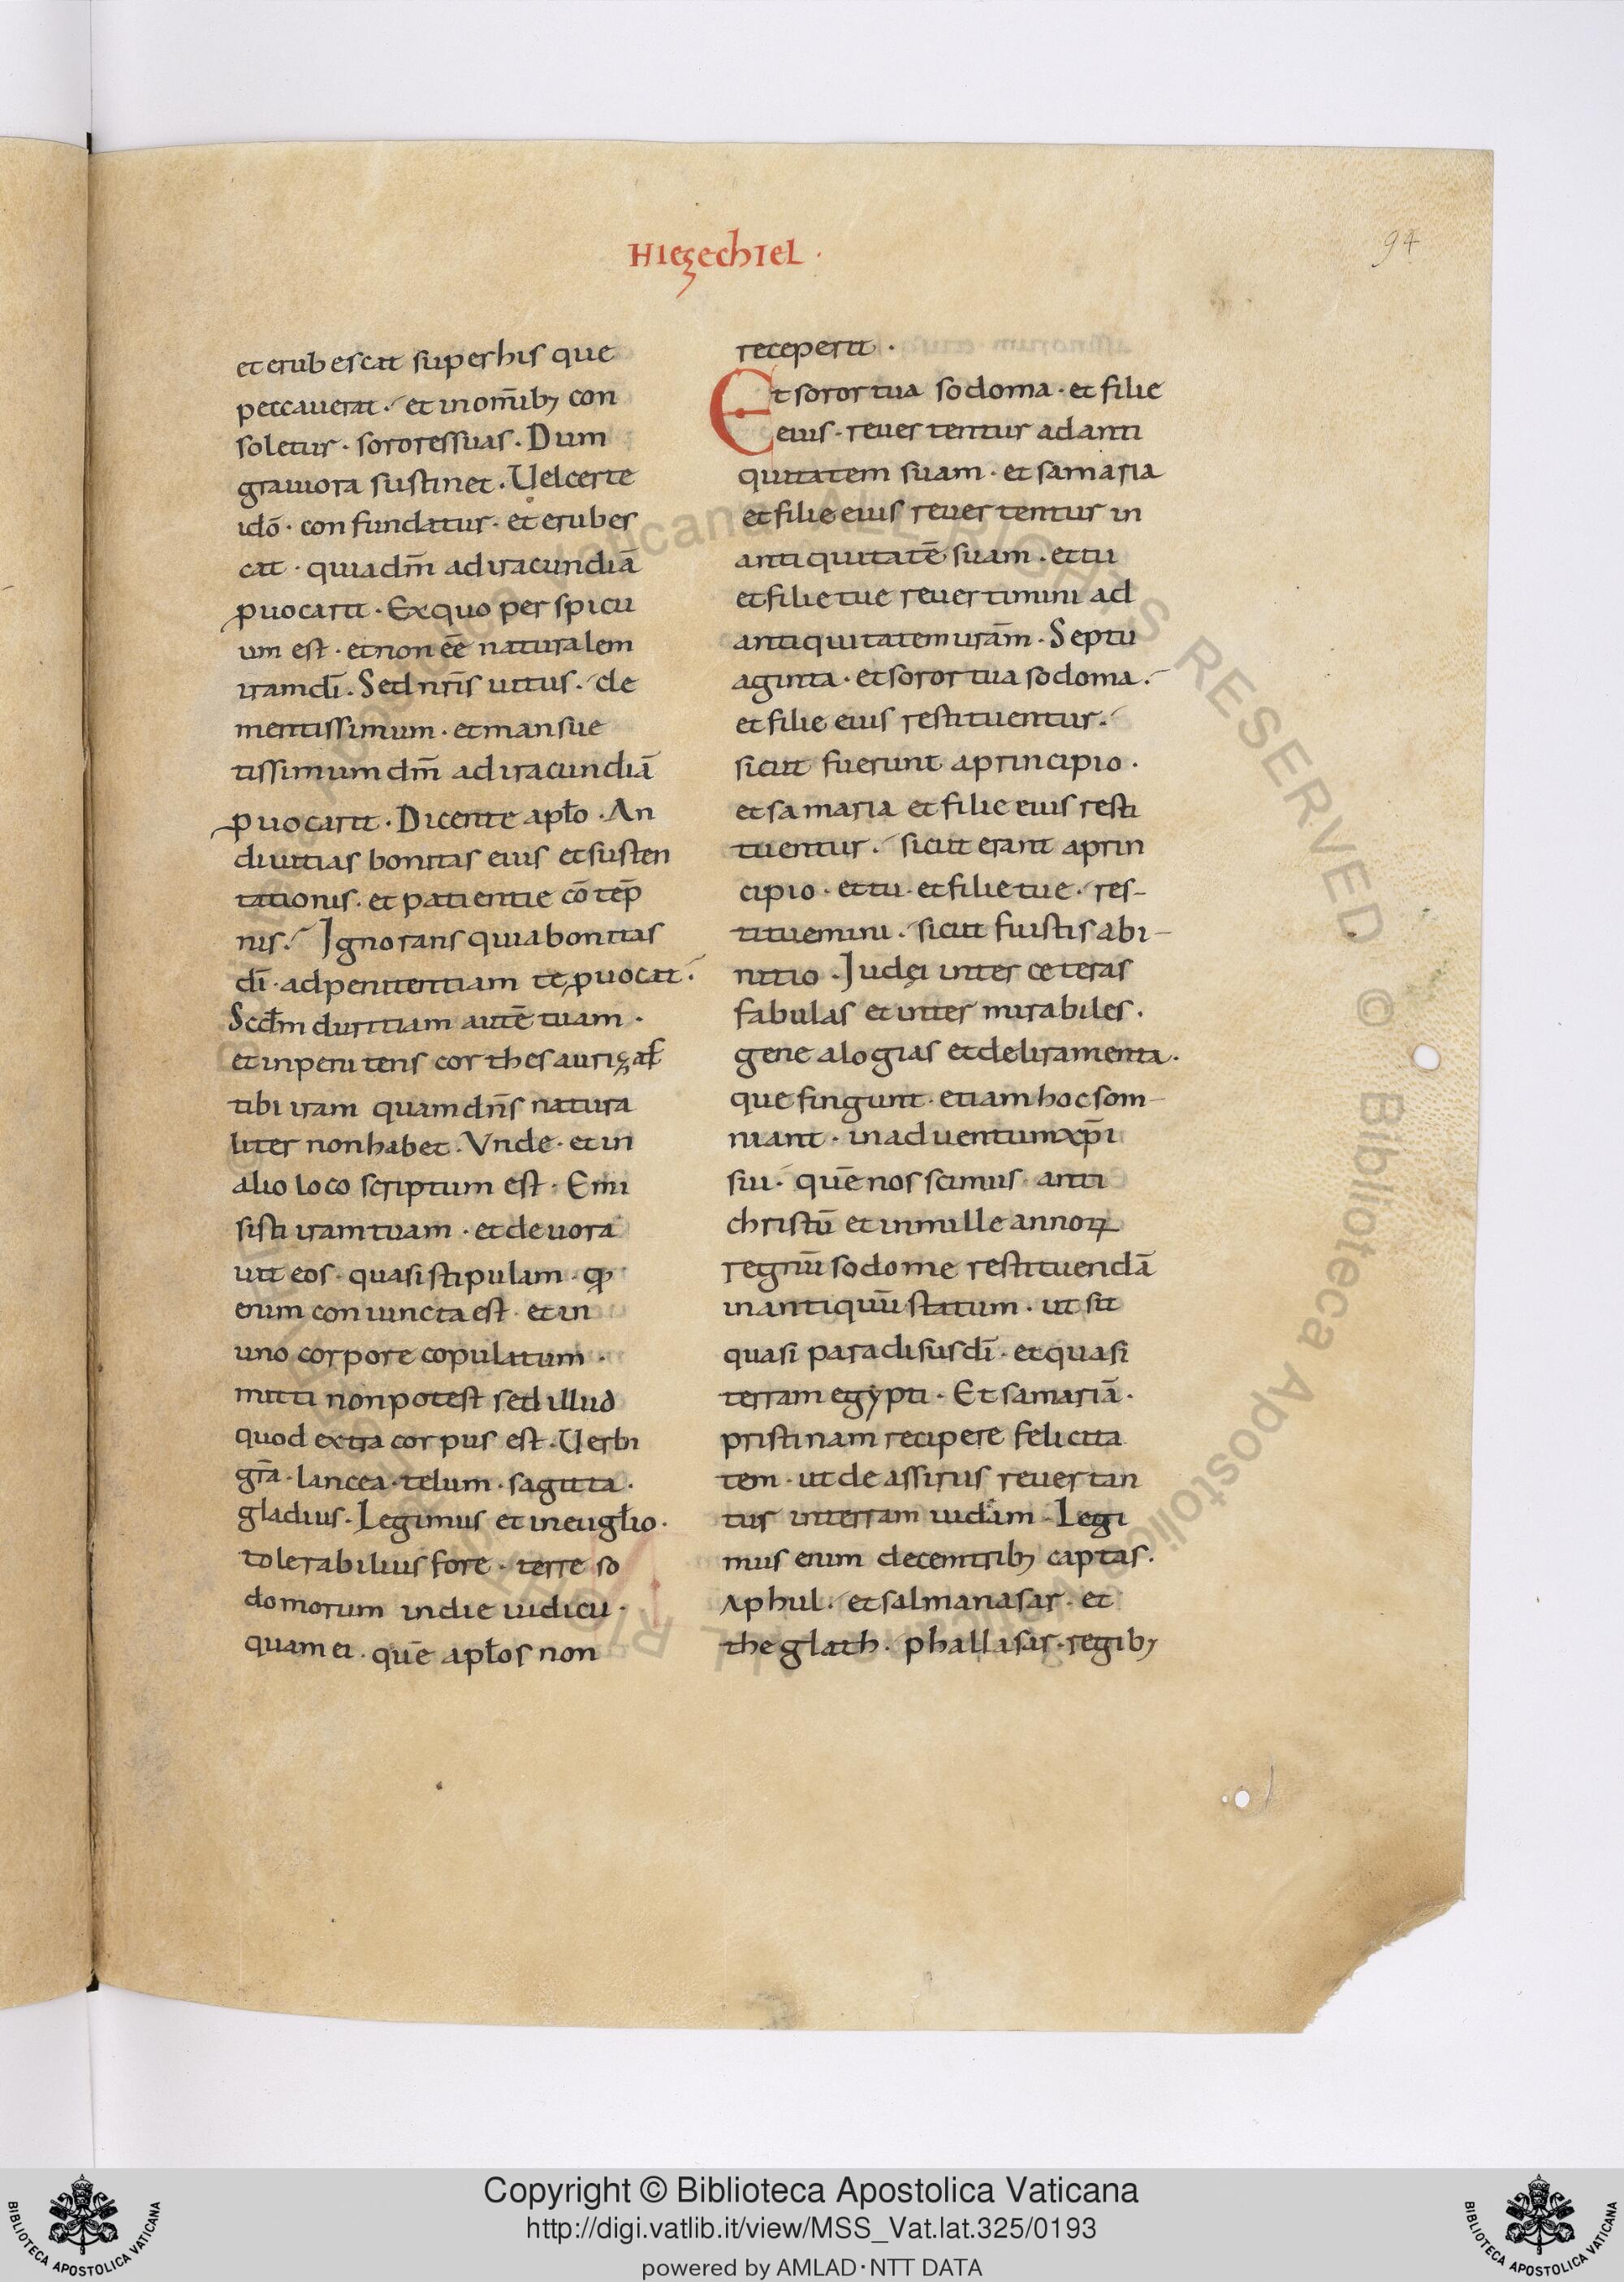 HIezechIeL ·
94
et erubescat super his que
peccauerat · et in om̄ib; con
soletur · sorores suas · Dum
grauiora sustinet · Uel certe
idō · confundatur · et erubes
cat · quia dm̄ ad iracundiā
ꝓuocarit · Ex quo perspicu
um est · et non eē naturalem
iram dī · Sed nr̄is uitiis · cle
mentissimum · et mansue
tissimum dm̄ ad iracundiā
ꝓuocarit · Dicente apl̄o · An
diuitias bonitas eius et susten
tationis · et patientie cō tēp
nis · Ignorans quia bonitas
dī · ad penitentiam te ꝓuocat ·
Scd̄m duritiam autē tuam ·
et inpenitens cor thesaurizas
tibi iram quam dn̄s natura
liter non habet · Vnde · et in
alio loco scriptum est · Emi
sisti iram tuam · et deuora
uit eos · quasi stipulam · qꝫ
enim coniuncta est · et in
uno corpore copulatum ·
mitti non potest sed illud
quod extra corpus est · Uerbi
gr̄a · lancea · telum · sagitta ·
gladius · Legimus et in eugl̄io ·
tolerabilius fore · terre so
domorum in die iudicii ·
quam ei · quē apl̄os non
receperit ·
Et soror tua sodoma · et filie
eius · reuertentur ad anti
quitatem suam · et samaria
et filie eius reuertentur in
antiquitatē suam · et tu
et filie tue reuertimini ad
antiquitatem urām · Septu
aginta · et soror tua sodoma ·
et filie eius restituentur ·
sicut fuerunt a principio ·
et samaria et filie eius resti
tuentur · sicut erant a prin
cipio · et tu · et filie tue · res-
tituemini · sicut fuistis ab i-
nitio · Iudęi inter ceteras
fabulas et inter mirabiles ·
genealogias et deliramenta ·
que fingunt · etiam hoc som-
niant · in aduentum xp̄i
sui · quē nos scimus · anti
christū et in mille annoꝝ
regnū sodome restituendā
in antiquū statum · ut sit
quasi paradisus dī · et quasi
terram egypti · Et samariā ·
pristinam recipere felicita
tem · ut de assiriis reuertan
tur in terram iudam · Legi
mus enim decem trib; captas ·
A phul · et salmanasar · et
theglath · phallasar · regib;
Copyright © Biblioteca Apostolica Vaticana
http://digi.vatlib.it/view/MSS_Vat.lat.325/0193
powered by AMLAD·NTT DATA